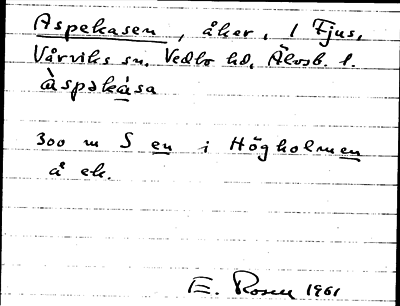 Aspekasen, åker, 1 Fjus,
Vårviks sn. Vedbo hd, Älvsb. l.
àspəkàsa
300 m S en i Högholmen
å ek.
E. Rosen 1961